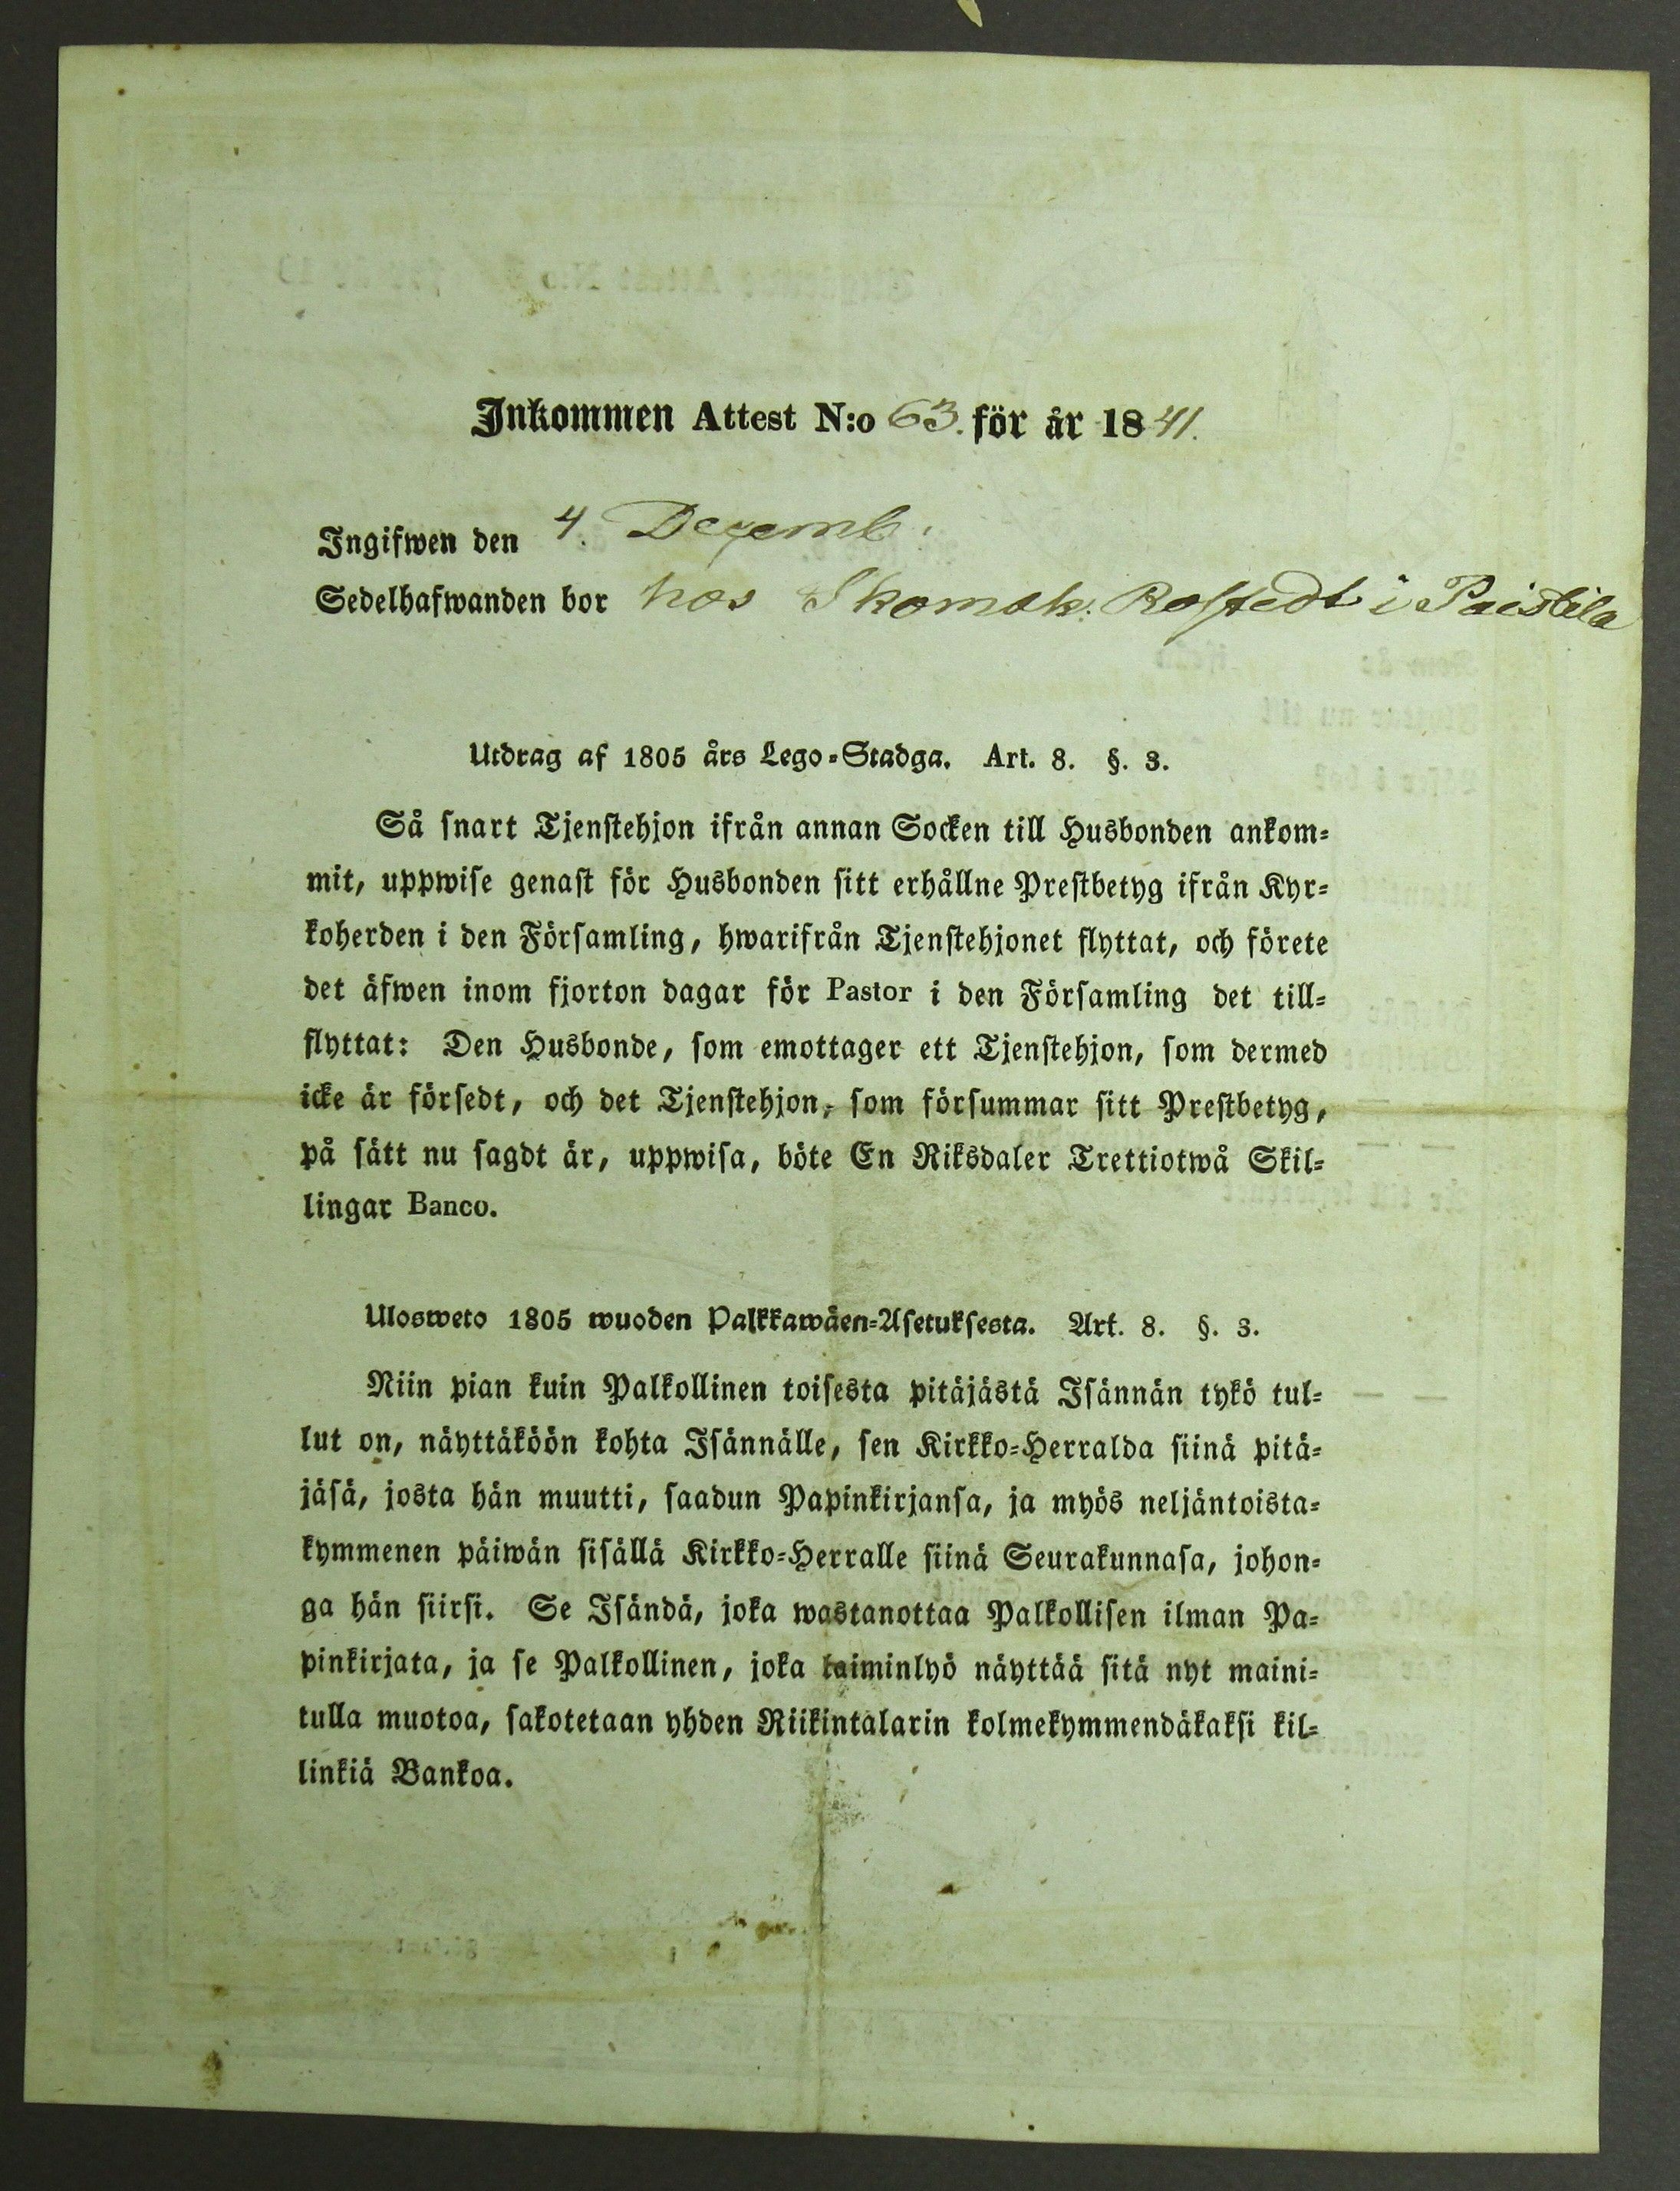 Inkommen Attest N:o 63. för år 1841.
Ingifwen den 4. Decemb.
Sedelhafwanden bor hos Skomak. Rostedt i Paistila
Utdrag af 1805 års Lego-Stadga. Art. 8. §. 3.
Så snart Tjenstehjon ifrån annan Socken till Husbonden ankom-
mit, uppwise genast för Husbonden sitt erhållne Prestbetyg ifrån Kyr-
koherden i den Församling, hwarifrån Tjenstehjonet flyttat, och förete
det äfwen inom fjorton dagar för Pastor i den Församling det till-
flyttat: Den Husbonde, som emottager ett Tjenstehjon, som dermed
icke är försedt, och det Tjenstehjon, som försummar sitt Prestbetyg,
på sätt nu sagdt är, uppwisa, böte En Riksdaler Trettiotwå Skil-
lingar Banco.
Ulosweto 1805 wuoden Palkkawäen-Asetuksesta. Art. 8. §. 3.
Niin pian kuin Palkollinen toisesta pitäjästä Isännän tykö tul-
lut on, näyttäköön kohta Isännälle, sen Kirkko-Herralda siinä pitä-
jäsä, josta hän muutti, saadun Papinkirjansa, ja myös neljäntoista-
kymmenen päiwän sisällä Kirkko-Herralle siinä Seurakunnasa, johon-
ga hän siirsi. Se Isändä, joka wastanottaa Palkollisen ilman Pa-
pinkirjata, ja se Palkollinen, joka laiminlyö näyttää sitä nyt maini-
tulla muotoa, sakotetaan yhden Riikintalarin kolmekymmendäkaksi kil-
linkiä Bankoa.